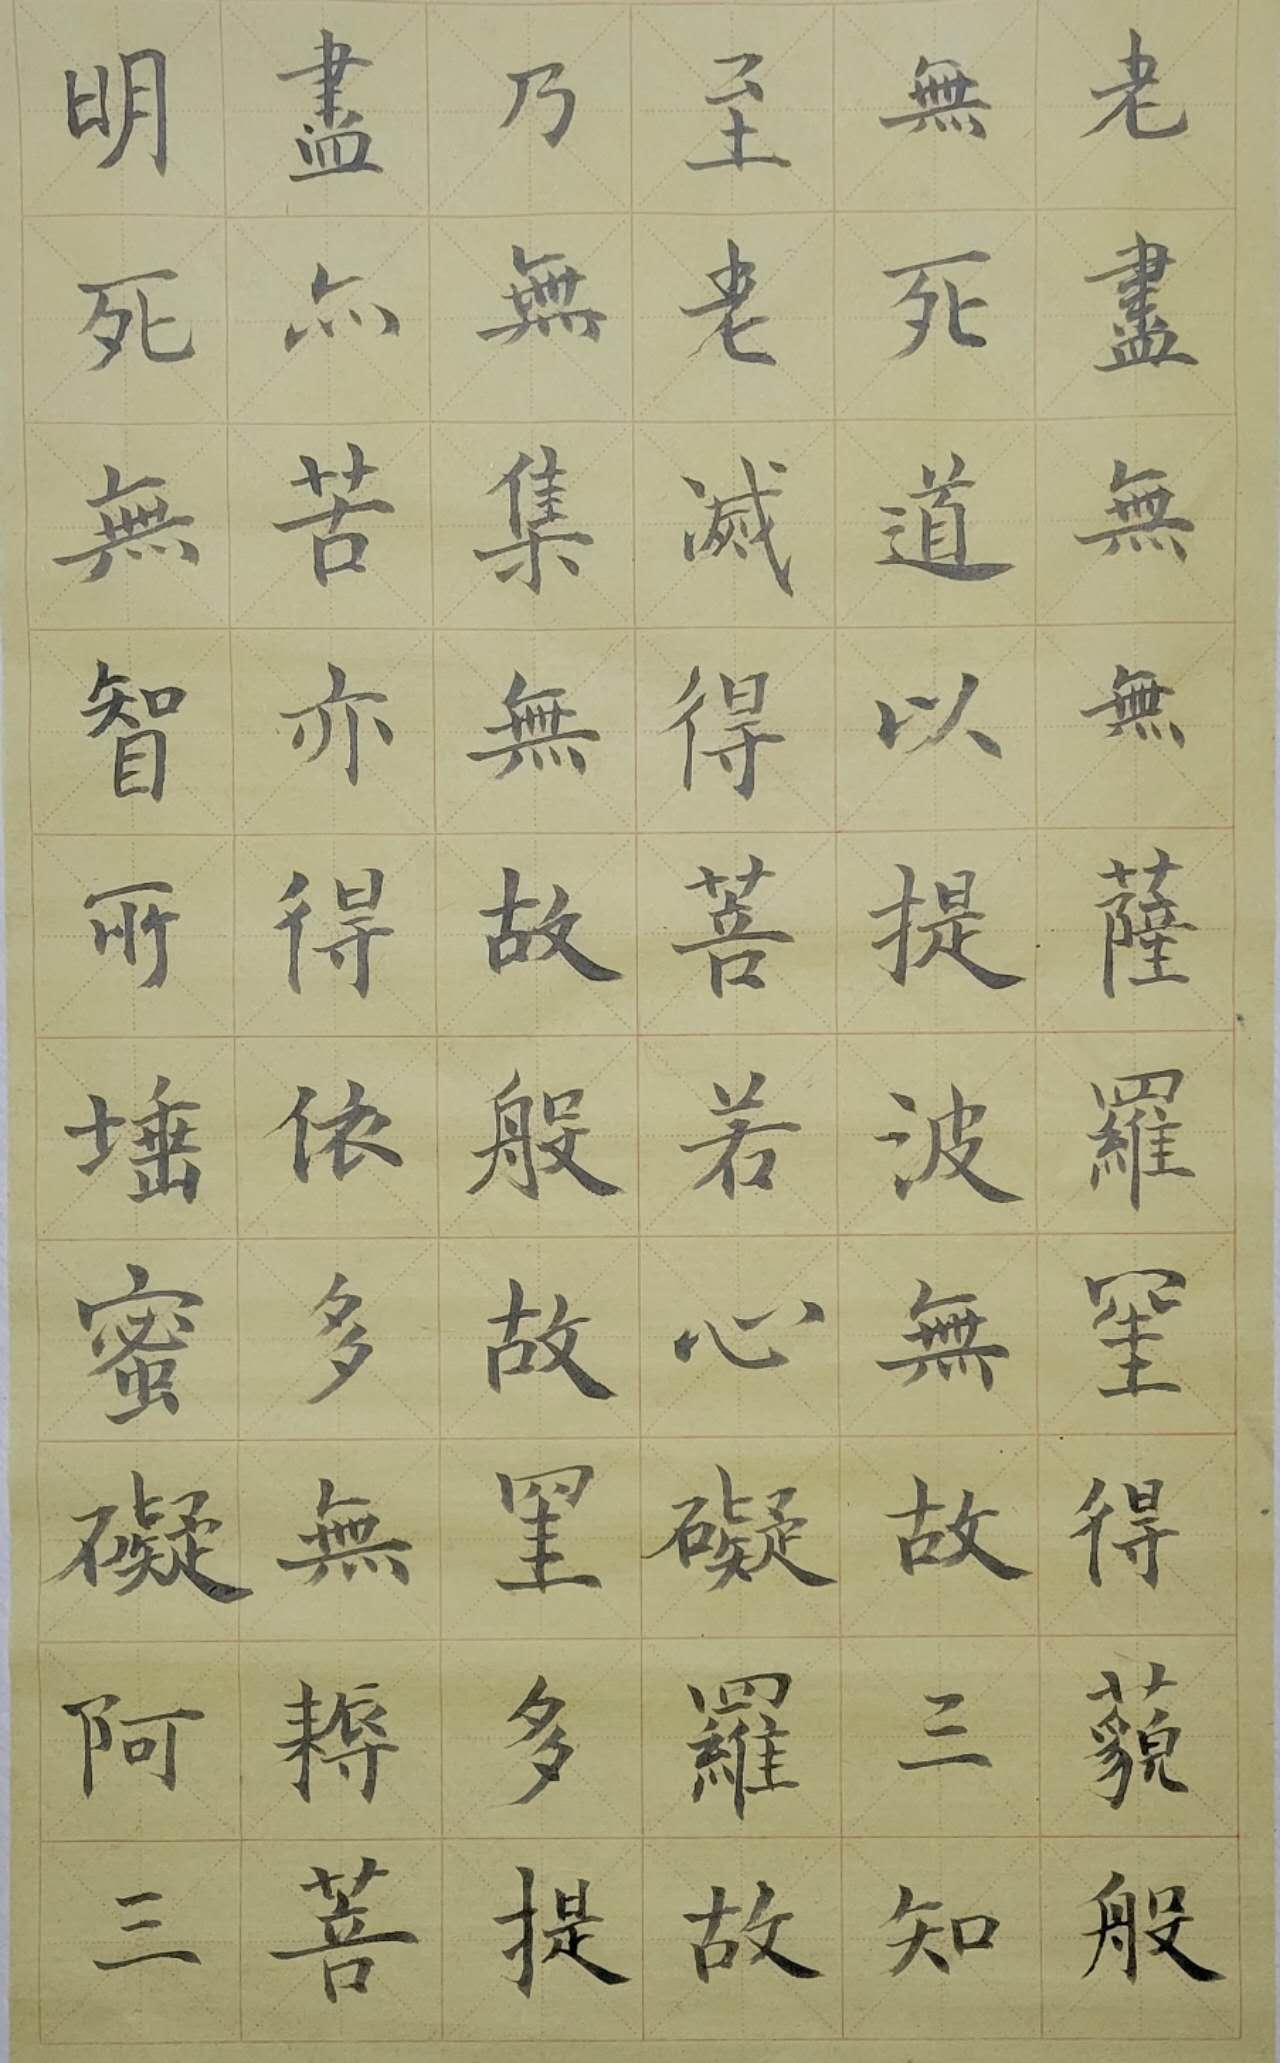 明盡乃至無老
死亦無老死盡
無苦集滅道無
智亦無得以無
所得故菩提薩
埵依般若波羅
蜜多故心無罣
礙無罣礙故得
阿耨多羅三藐
三菩提故知般